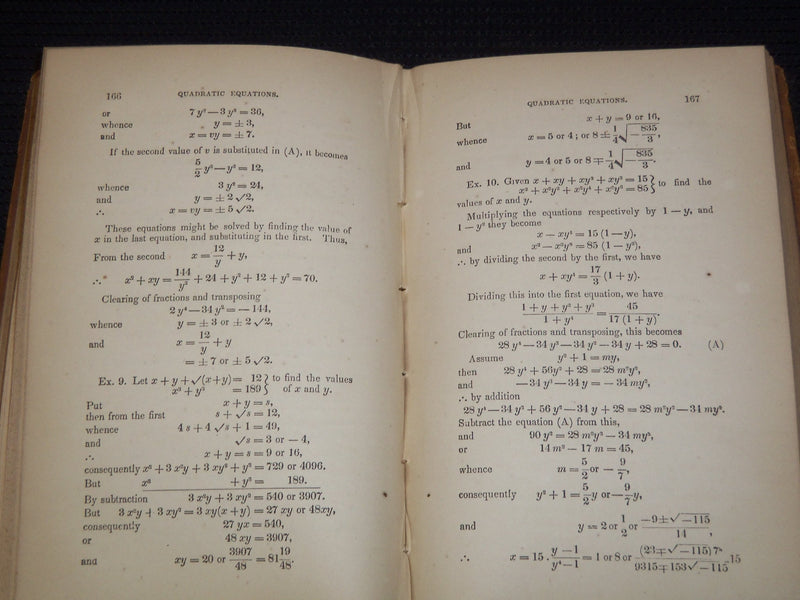 166 QUADRATIC EQUATIONS.
or 7 y² — 3 y² = 36,
whence y = ± 3,
and x = vy = ± 7.
If the second value of v is substituted in (A), it becomes
5/2 y² — y² = 12,
whence 3 y² = 24,
and y = ± 2 √2,
∴ x = vy = ± 5 √2.
These equations might be solved by finding the value of
x in the last equation, and substituting in the first. Thus,
From the second x = 12/y + y,
∴ x² + xy = 144/y² + 24 + y² + 12 + y² = 70.
Clearing of fractions and transposing
2 y⁴ — 34 y² = — 144,
whence y = ± 3 or ± 2 √2,
and x = 12/y + y
= ± 7 or ± 5 √2.
Ex. 9. Let x + y + √(x+y) = 12 } to find the values
x³ + y³ = 189 } of x and y.
Put x + y = s,
then from the first s + √s = 12,
whence 4 s + 4 √s + 1 = 49,
and √s = 3 or — 4,
∴ x + y = s = 9 or 16,
consequently x³ + 3 x²y + 3 xy² + y³ = 729 or 4096.
But x³ + y³ = 189.
By subtraction 3 x²y + 3 xy² = 540 or 3907.
But 3 x²y + 3 xy² = 3 xy(x + y) = 27 xy or 48xy,
consequently 27 yx = 540,
or 48 xy = 3907,
and xy = 20 or 3907/48 = 81 19/48.
QUADRATIC EQUATIONS. 167
But x + y = 9 or 16,
whence x = 5 or 4; or 8 ± 1/4 √(— 835/3),
and y = 4 or 5 or 8 ∓ 1/4 √(— 835/3).
Ex. 10. Given x + xy + xy² + xy³ = 15 } to find the
x² + x²y² + x²y⁴ + x²y⁶ = 85 }
values of x and y.
Multiplying the equations respectively by 1 — y, and
1 — y² they become
x — xy⁴ = 15 (1 — y),
and x² — x²y⁸ = 85 (1 — y²),
∴ by dividing the second by the first, we have
x + xy⁴ = 17/3 (1 + y).
Dividing this into the first equation, we have
(1 + y + y² + y³)/(1 + y⁴) = 45/(17 (1 + y))
Clearing of fractions and transposing, this becomes
28 y⁴ — 34 y³ — 34 y² — 34 y + 28 = 0. (A)
Assume y² + 1 = my,
then 28 y⁴ + 56y² + 28 = 28 m²y²,
and — 34 y³ — 34 y = — 34 my²,
∴ by addition
28 y⁴ — 34 y³ + 56 y² — 34 y + 28 = 28 m²y² — 34 my².
Subtract the equation (A) from this,
and 90 y² = 28 m²y² — 34 my²,
or 14 m² — 17 m = 45,
whence m = 5/2 or — 9/7,
consequently y² + 1 = 5/2 y or — 9/7 y,
and y = 2 or 1/2 or (—9 ± √—115)/14,
∴ x = 15 . (y — 1)/(y⁴ — 1) = 1 or 8 or (23 ∓ √—115) 7³/(9315 ∓ 153 √—115) .15